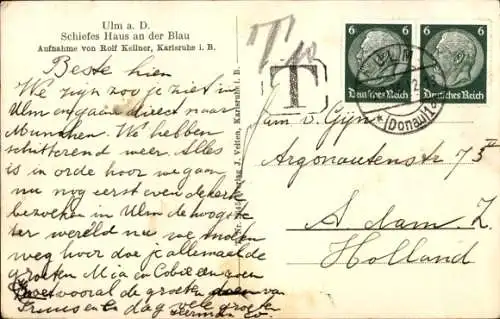 Ulm a. D.
Schiefes Haus an der Blau
Aufnahme von Rolf Kellner, Karlsruhe i. B.
Beste hien
We zijn zoo je ziet in
Ulm en gaan direct naar
Munchen. We hebben
schitterend weer. Alles
is in orde hoor we gaan
nu nog eerst even de kerk
bezoeken in Ulm de hoogste
ter wereld nu we moeten
weg hoor doe je allemaal de
groeten Mia en Cobie en geen
vooral de groeten van
en en dag vele groeten
Herman en Co.
Verlag J. Velten, Karlsruhe i. B.
T
T
6 6
Deutsches Reich Deutsches Reich
ULM
(Donau) 1
Jam v. Gijn
Argonautenstr 73 II
A dam. Z.
Holland